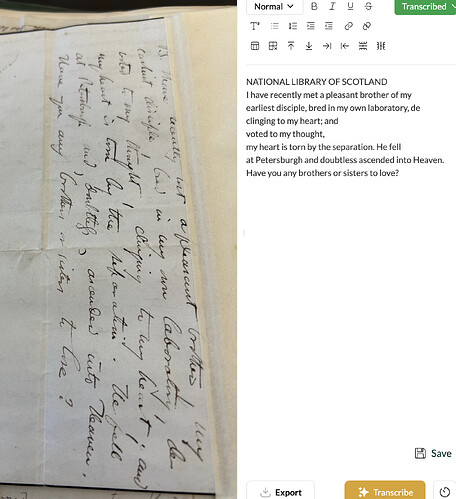 I have recently lost a pleasant brother, my
earliest disciple, bred in my own laboratory, de-
voted to my thought, clinging to my heart; and
my heart is torn by the separation. He fell
at Petersburgh and, doubtless, ascended into Heaven.
Have you any brothers or sisters to lose?
Normal
B I U S
Transcribed
NATIONAL LIBRARY OF SCOTLAND
I have recently met a pleasant brother of my
earliest disciple, bred in my own laboratory, de
clinging to my heart; and
voted to my thought,
my heart is torn by the separation. He fell
at Petersburgh and doubtless ascended into Heaven.
Have you any brothers or sisters to love?
Save
Export
Transcribe